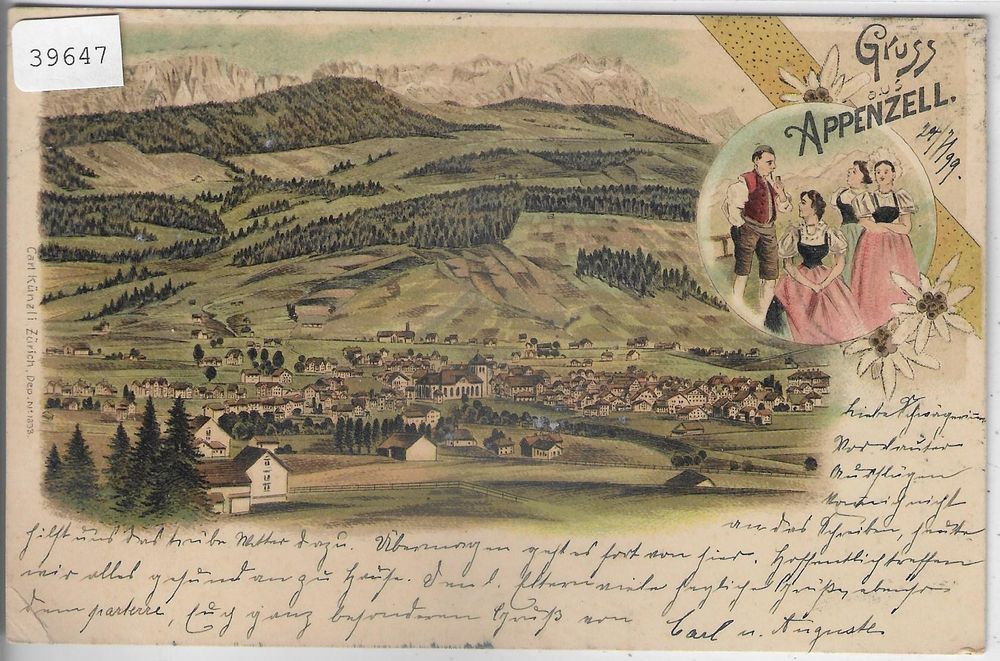 39647
Gruss
aus
APPENZELL.
29/7/99.
Carl Künzli Zürich, Dep. No 1898.
Liebe Schwägerin
Vor lauter
Ausflügen
kam ich nicht
an das Schreiben, heute
hilft uns das trübe Wetter dazu. Übermorgen geht es fort von hier. Hoffentlich treffen
wir alles gesund an zu Hause. Den l. Eltern viele herzliche Grüße, ebenso
dem parterre, Euch ganz besonderen Gruß von Carl u. Auguste